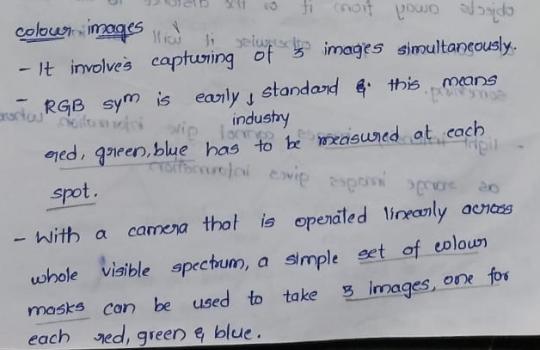 colour images
- It involves capturing of 3 images simultaneously.
- RGB sym is early, standard & this means
industry
red, green, blue has to be measured at each
spot.
- With a camera that is operated linearly across
whole visible spectrum, a simple set of colour
masks can be used to take 3 images, one for
each red, green & blue.